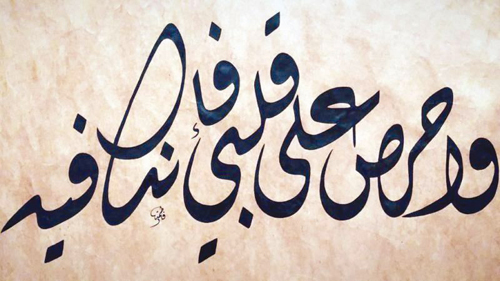 واحرص على قلبي فإنك فيه